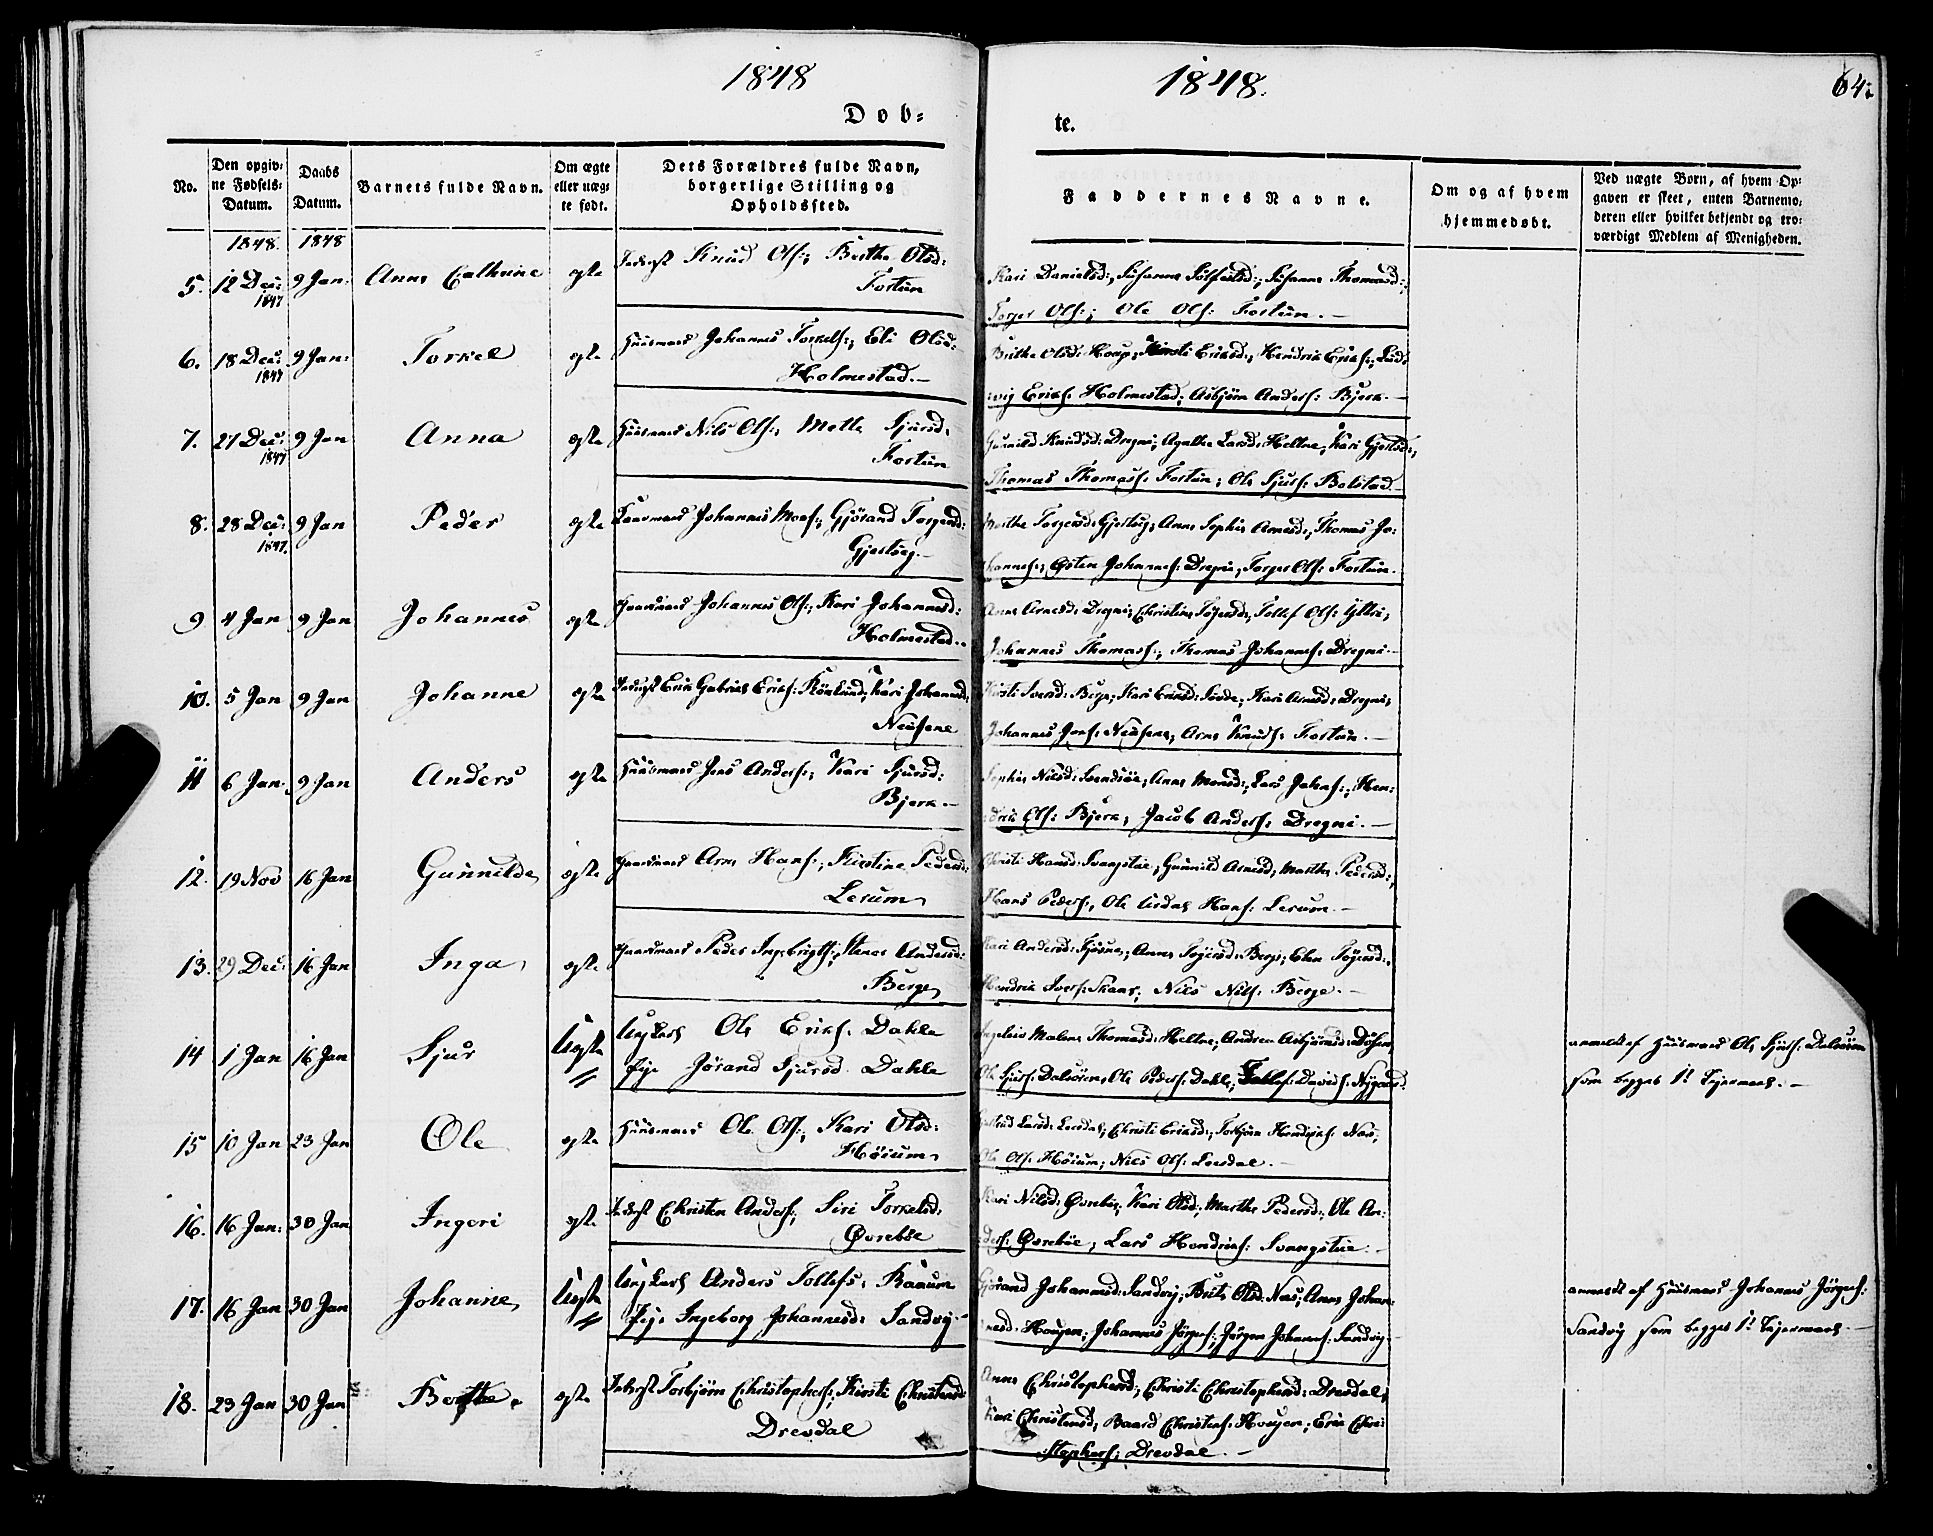 1848
1848.
64.
Døb-
te.
No.
Den opgiv-
ne Fødsels-
Datum.
Daabs
Datum.
Barnets fulde Navn.
Om ægte
eller uæg-
te født.
Dets Forældres fulde Navn,
borgerlige Stilling og
Opholdssted.
Faddernes Navne.
Om og af hvem
hjemmedøbt.
Ved uægte Børn, af hvem Op-
gaven er skeet, enten Barnemo-
deren eller hvilket bekjendt og tro-
værdigt Medlem af Menigheden.
1848. 1848
5. 12 Dec: 1847 9 Jan: Anna Cathrine egte Inderst Knud Ols:, Brithe Olsd:
Fortun
Kari Danielsd:, Susanna, Susanna Thomasd:,
Torger Ols:; Ole Ols: Fortun.
6. 18 Dec: 1847 9 Jan: Torkel egte Huusmand Johannes Torkels:, Eli Olsd:
Holmestad.
Brithe Olsd: Houg, Kirsti Eriksd:, Hendrik Eriks:, Lud-
vig Eriks: Holmestad; Asbjørn Anders: Bjerk.
7. 27 Dec: 1847 9 Jan Anna egte Huusmand Nils Ols:, Mette Sjursd:
Fortun
Gunnild Knudsd: Dregni; Agathe Larsd: Heltne, Kari Gjertsd:,
Thomas Thomass: Fortun; Ole Sjurs: Bolstad.
8. 28 Dec: 1847. 9 Jan Peder egte Johannes Mons:, Gjørand Torgersd:
Gjesteng.
Torgersd:, Anna Sophia Arnesd:, Thomas Jo-
hannes:; Østen Johannes: Dregni, Torger Ols: Fortun.
9 4 Jan 9 Jan Johannes egte Gaardmand Johannes Ols:, Kari Johannesd:
Holmestad.
Anna Arnesd: Dregni; Christina, Tollef Ols: Yltri;
Johannes Thomass:; Thomas Johannes: Dregni.
10. 5 Jan 9 Jan Johanne egte Inderst Erik Gabriel Eriks:, Kari Johannesd:
Kirsti Iversd: Berge, Kari Eriksd:, Kari Arnesd: Dregni;
Johannes Jons:, Arne Knuds: Fortun.
11 6 Jan. 9 Jan Anders egte Huusmand Jens Anders:; Kari Sjursd:
Bjerk.
Sophia Nilsd:, Anna Monsd:, Lars Johns:, Hen-
drik Ols: Bjerk; Jacob Anders: Dregni.
12. 19 Nov 16 Jan Gunnilde egte Gaardmand Arne Hans:, Kirstine Pedersd:
Lerum
Christi Hansd: Svangstue; Gunnild Arnesd, Marthe Pedersd:,
Hans Peders:, Ole Hans: Lerum.
13. 29 Dec: 16 Jan Inga egte Gaardmand Peder Ingebrigts:, Stena Andersd:
Berge
Kari Andersd:, Anna Berge; Elen,
Hendrik Ivers: Skaar; Nils Nils: Berge.
14 1 Jan 16 Jan Sjur Uegte Ungkarl Ole Eriks. Dahle
Pige Jørand Sjursd. Dahle
Malene Thomasd: Heltne; Andrea Asbjørnsd:,
Ole Sjurs: Dalsøren, Ole Peders: Dahle; Tollef Davids: Nygaard.
anmeldt af Huusmand Ole Sjurs: Dalsøren
som begges 1te Lejermaal.
15 10 Jan 23 Jan Ole egte Huusmand Ole Ols:, Kari Olsd:
Høium
Larsd: Leirdal; Christi Eriksd:, Torbjørn Hendriks: Næs,
Ole Ols: Høium; Nils Ols: Leirdal.
16. 16 Jan: 30 Jan Ingeri egte Inderst Christen Anders:, Siri Torkelsd:
Øvrebøe
Kari Nilsd: Øvrebø, Kari Olsd:, Marthe Pedersd:, Ole An-
ders: Øvrebøe, Lars Hendriks: Svangstue.
17. 16 Jan 30 Jan Johanne Uegte Ungkarl Anders Tollefs: Raaum
Pige Ingeborg Johannesd: Sandvig
Gjørand Johannesd: Sandvig; Brite Olsd: Næs; Anna Johan-
nesd: Hougen; Johannes Jørgens:, Jørgen Johannes: Sandvig
anmeldt af Huusmand Johannes Jørgens:
Sandvig som begges 1te Lejermaal.
18. 23 Jan 30 Jan Berthe egte Inderst Torbjørn Christophers:, Kirsti Christensd:
Drevdal
Anna Christophersd:; Christi Christophersd: Drevdal;
Kari Christensd:, Baard Christens: Hougen; Erik Chri-
stophers: Drevdal.